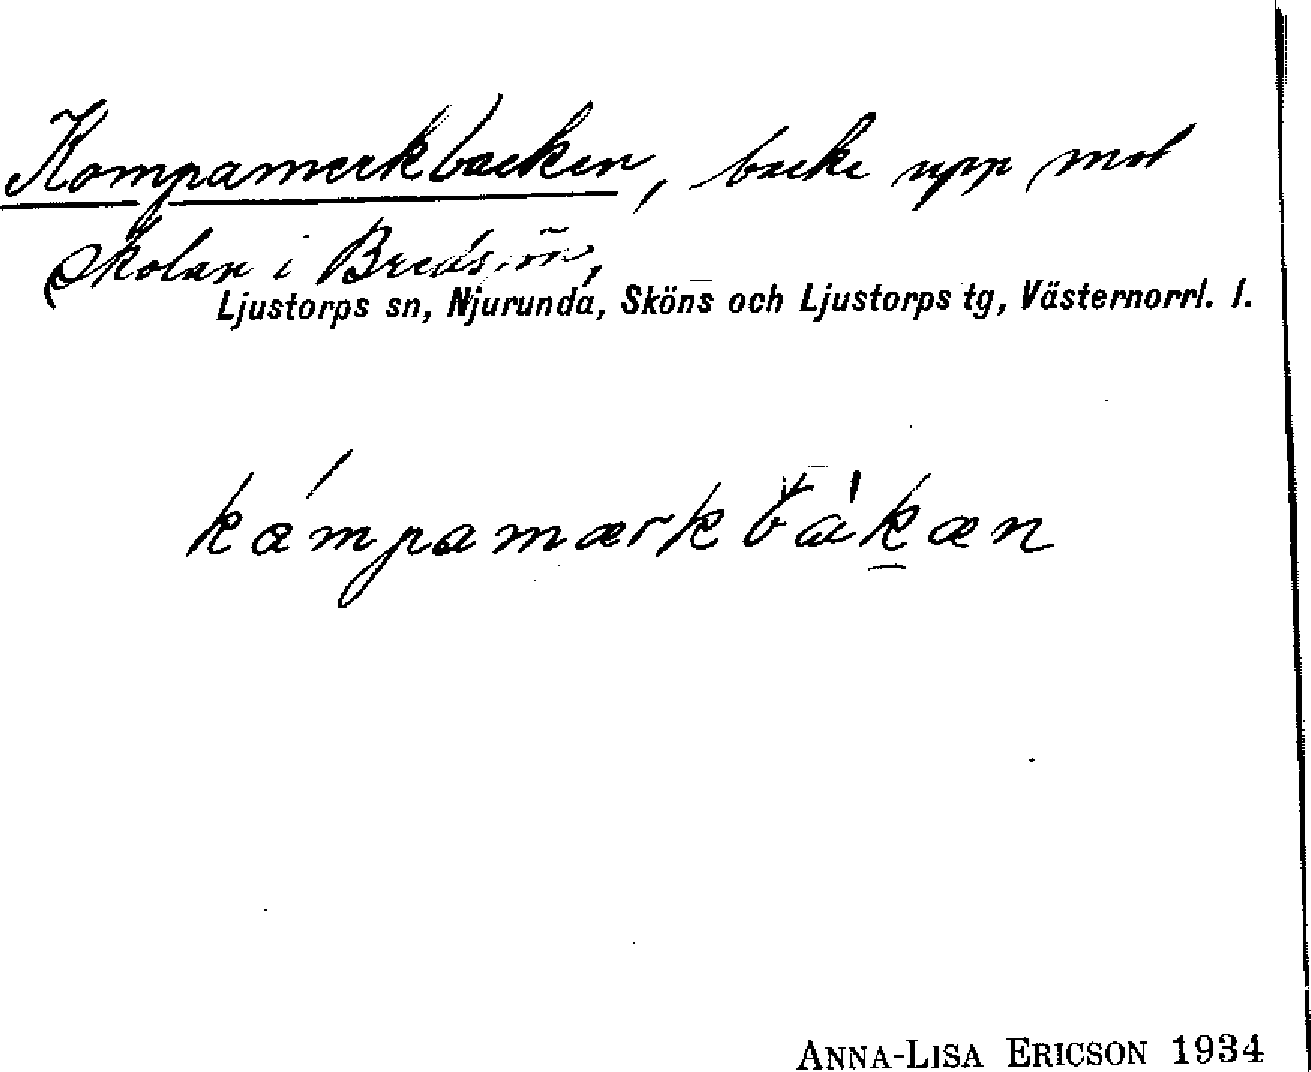 Kompamerkbacken, backe upp mot
skolan i Bredsjön,
Ljustorps sn, Njurunda, Sköns och Ljustorps tg, Västernorrl. l.
kámpamærkbàkæn
ANNA-LISA ERICSON 1934